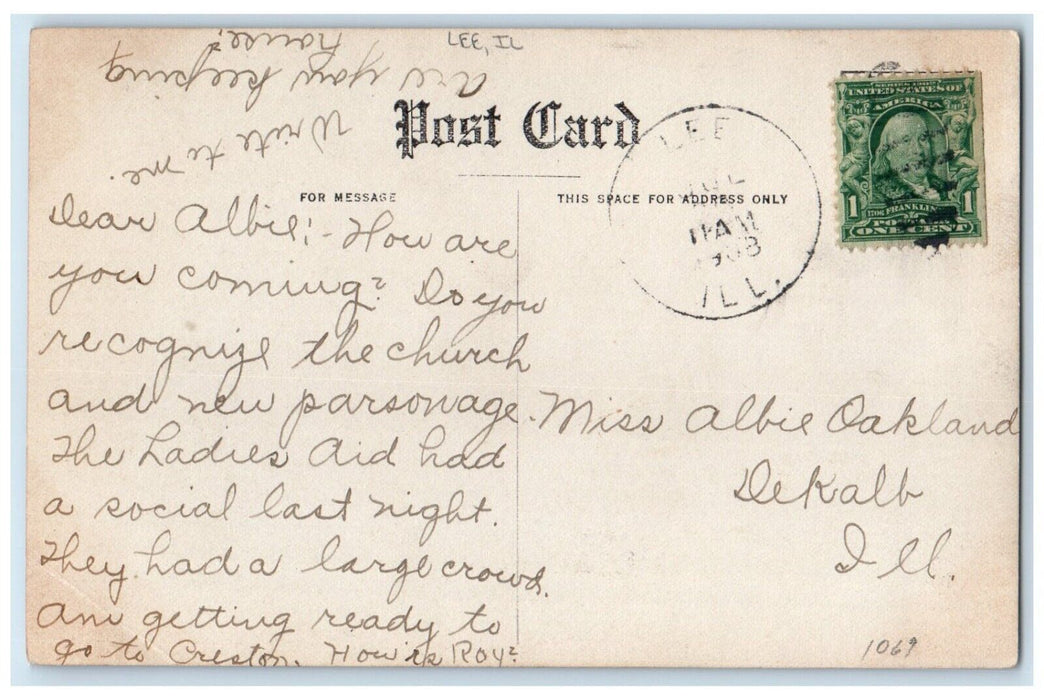 LEE, IL
Post Card
FOR MESSAGE
THIS SPACE FOR ADDRESS ONLY
LEE
11 AM
1908
ILL.
SERIES 1902
UNITED STATES OF
AMERICA
1 FRANKLIN 1
POSTAGE
ONE CENT
Dear Albie;- How are
you coming? Do you
recognize the church
and new parsonage.
The Ladies Aid had
a social last night.
They had a large crowd.
Am getting ready to
go to Creston. How is Roy?
Write to me.
Are you keeping
house?
Miss Albie Oakland
DeKalb
Ill.
1069